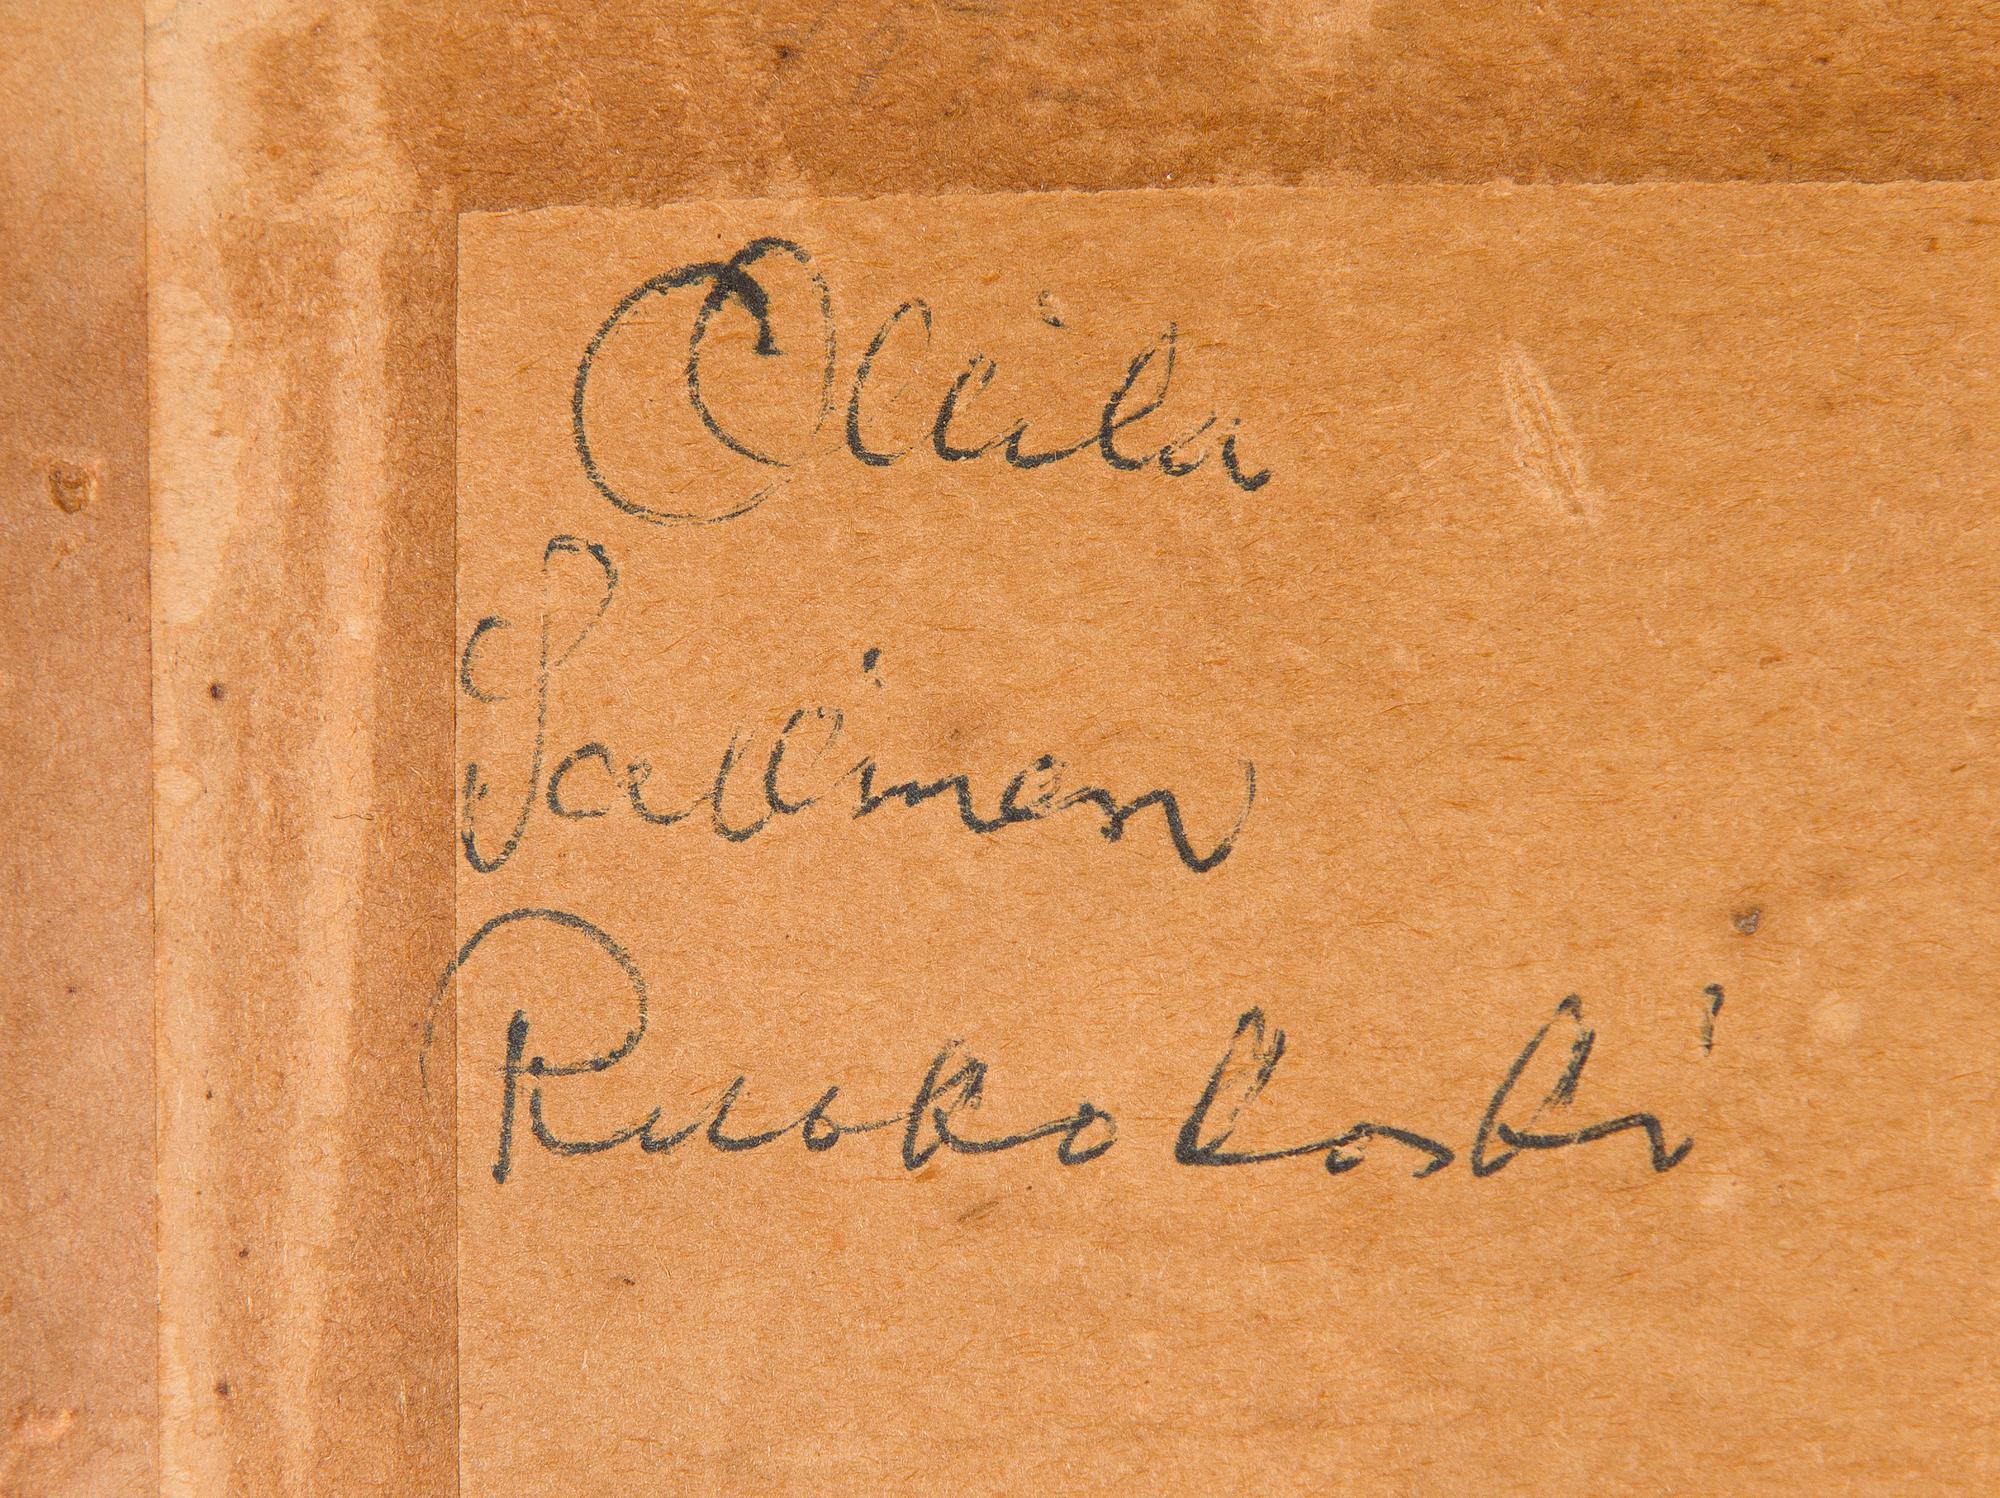 Ollila
Sallinen
Ruokokoski